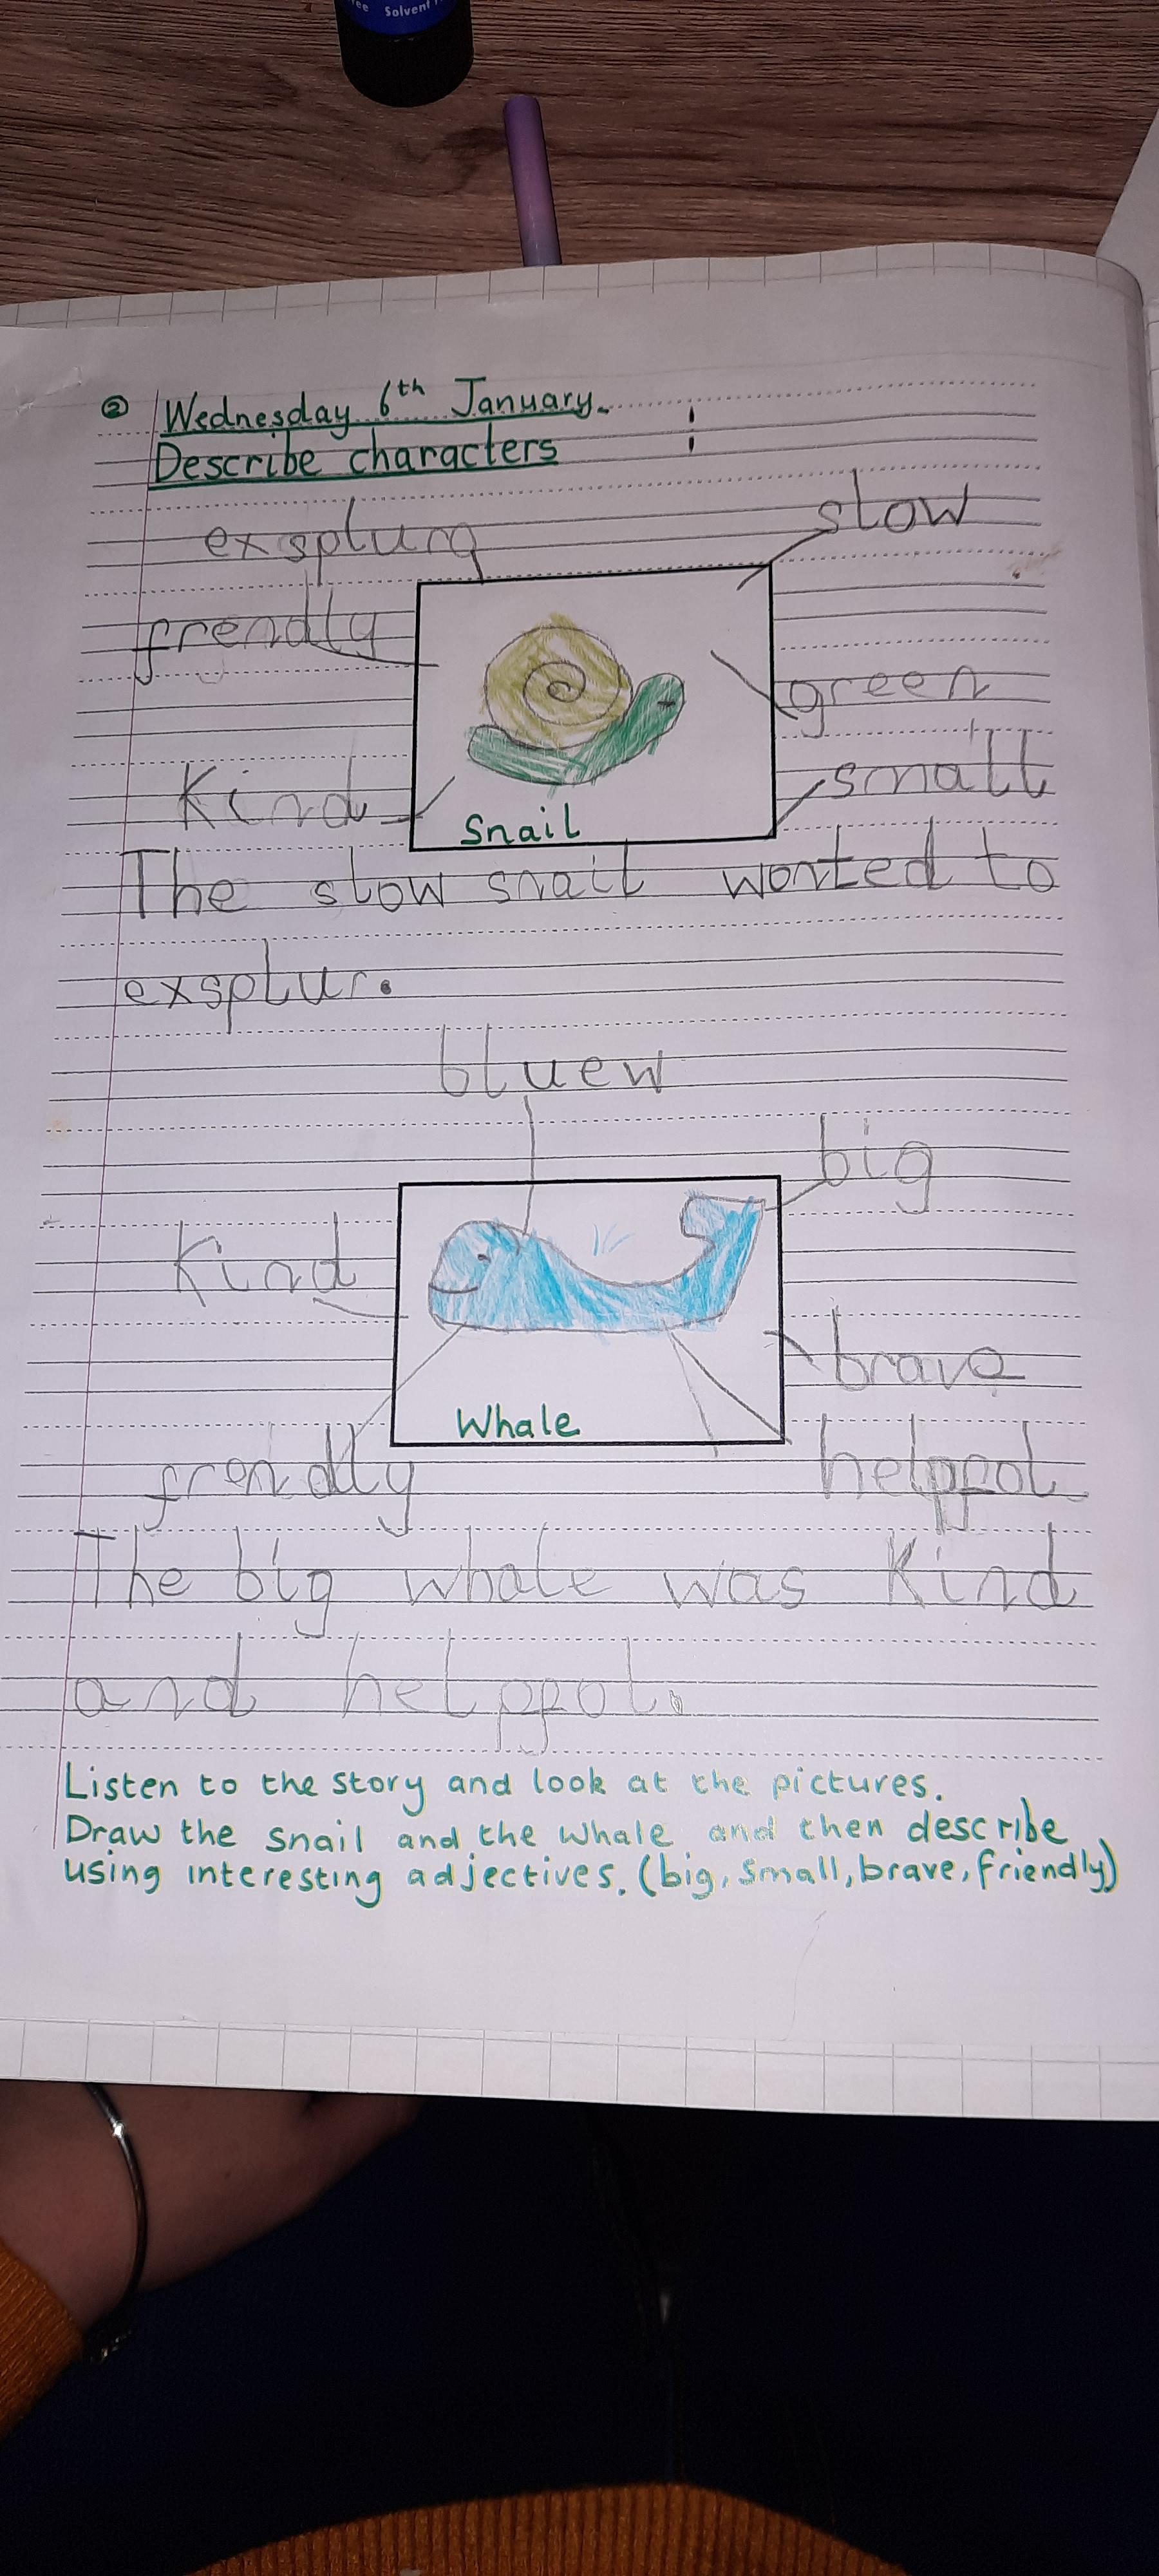 ee Solvent
② Wednesday 6th January.
Describe characters
exsplurg
slow
frendly
green
Kind
small
Snail
The slow snail wonted to
exsplur.
bluew
big
Kind
brave
Whale
frendly
helppol
The big whale was Kind
and helppol.
Listen to the story and look at the pictures.
Draw the snail and the whale and then describe
using interesting adjectives. (big, small, brave, friendly)